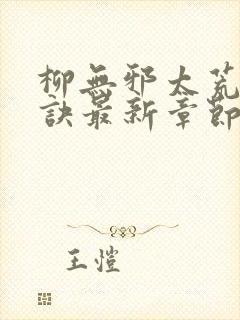 柳無邪太荒
訣最新章節
王愷